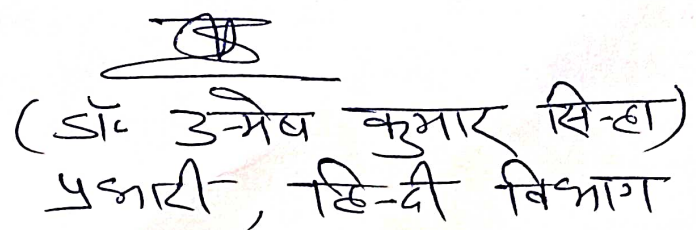 (डॉ॰ उन्मेष कुमार सिन्हा)
प्रभारी, हिन्दी विभाग